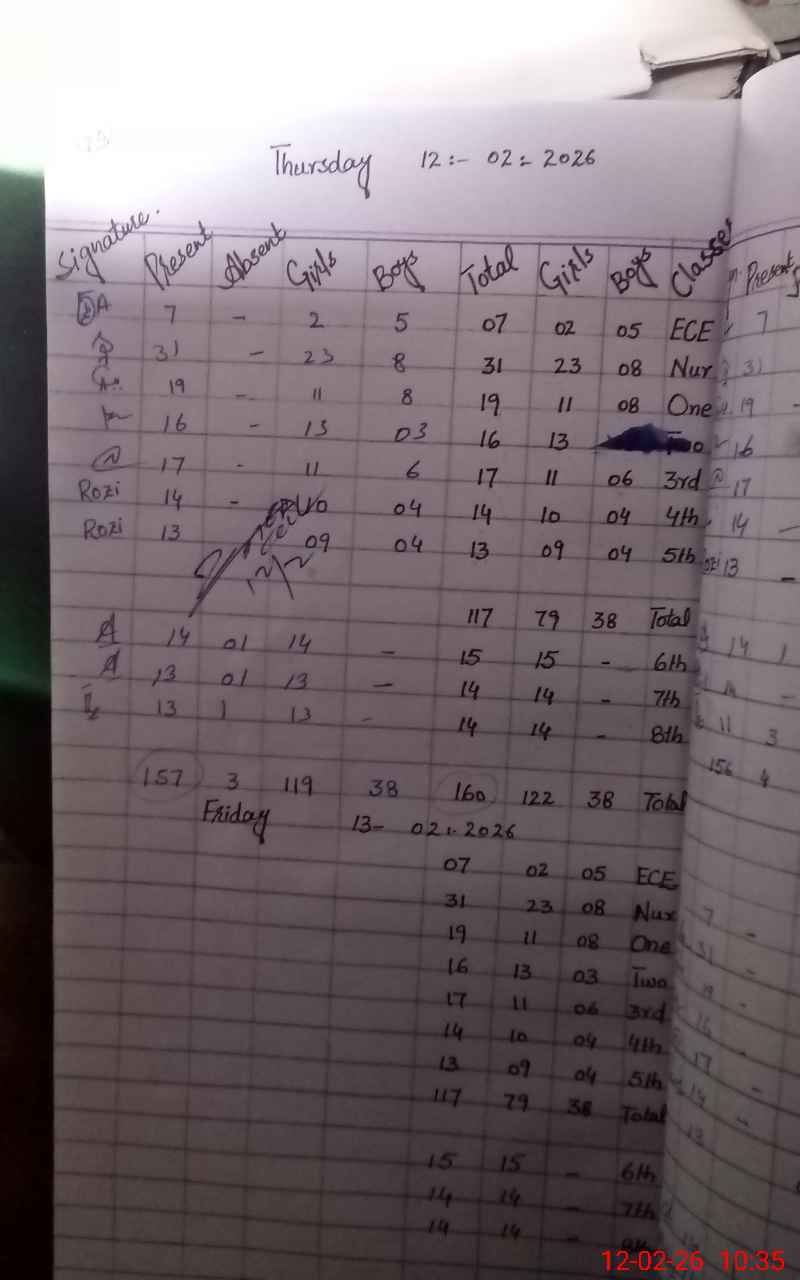 Thursday 12:- 02:- 2026
Signature. Present Absent Girls Boys Total Girls Boys Classes Present
7 - 2 5 07 02 05 ECE 7
31 - 23 8 31 23 08 Nur 31
19 - 11 8 19 11 08 One 19
16 - 13 03 16 13 16
17 - 11 6 17 11 06 3rd 17
Rozi 14 - 10 04 14 10 04 4th 14 -
Rozi 13 09 04 13 09 04 5th 13 -
12/2
117 79 38 Total
A 14 01 14 - 15 15 - 6th 14 1
A 13 01 13 - 14 14 - 7th -
13 1 13 - 14 14 - 8th 11 3
157 3 119 38 160 122 38 Total 156 4
Friday 13- 02:- 2026
07 02 05 ECE
31 23 08 Nur 7 -
19 11 08 One 31 -
16 13 03 Two 19 -
17 11 06 3rd 16 -
14 10 04 4th 17 -
13 09 04 5th 14 -
117 79 38 Total 13
15 15 - 6th
14 14 - 7th
14 14 - 8th
12-02-26 10:35